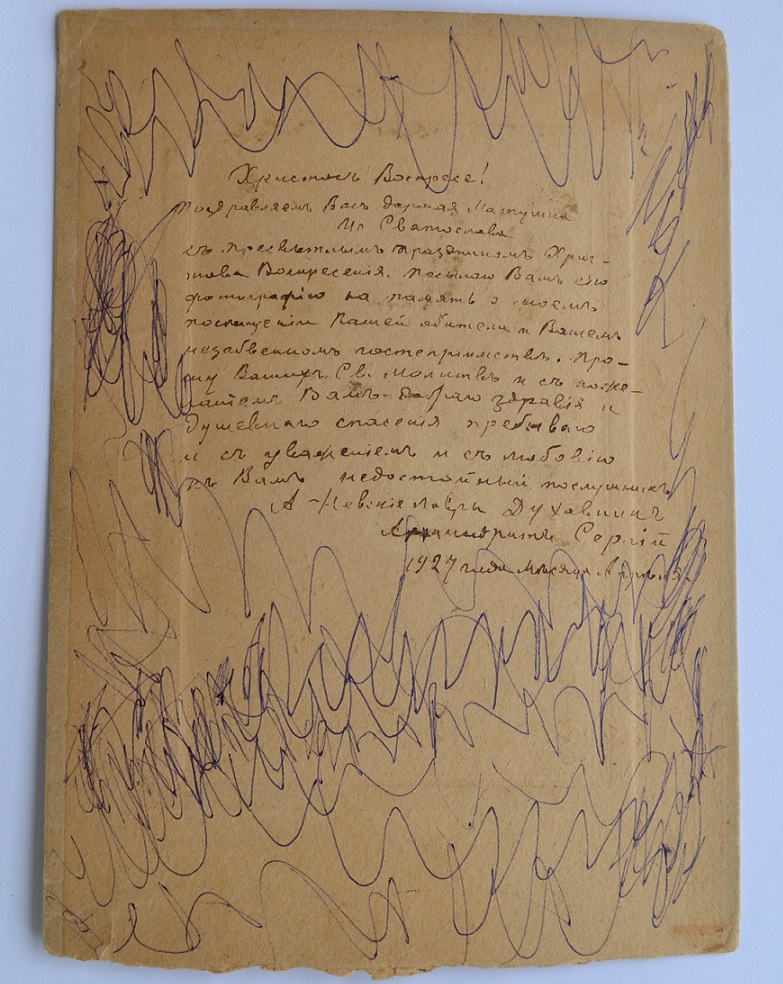 Христосъ Воскресе!
Поздравляемъ Васъ дорогая Матушка
Иг Святослава
съ пресвѣтлымъ праздникомъ Хрис-
това Воскресенія. Посылаю Вамъ сію
фотографію на память о моемъ
посѣщеніи Вашей обители и Вашемъ
незабвенномъ гостепріимствѣ. Про-
шу Вашихъ Св. Молитвъ и съ поже-
ланіемъ Вамъ добраго здравія и
душевнаго спасенія пребываю
и съ уваженіемъ и съ любовію
къ Вамъ недостойный послушникъ
А-Невскія Лавры Духовникъ
Архимандритъ Сергій
1927 года Мѣсяца Апрѣля